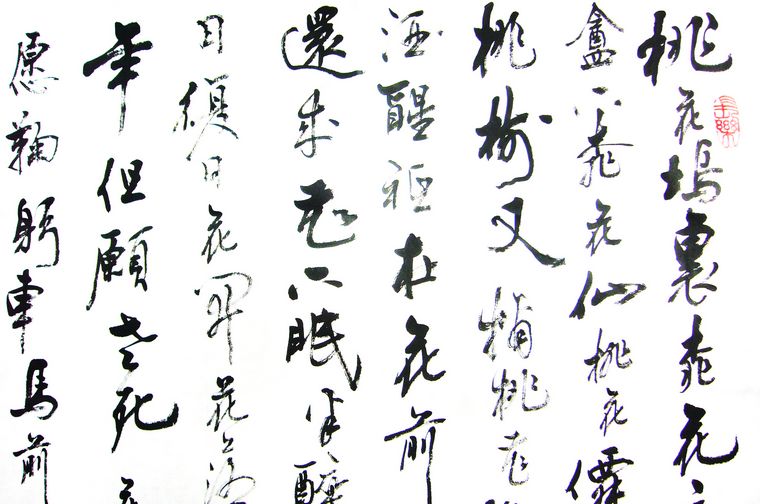 長樂
桃花塢裏桃花
盦下桃花仙桃花僊
桃樹又摘桃花
酒醒祗在花前
還来花下眠半醒
日復日花開花落
年但願老死
愿鞠躬車馬前